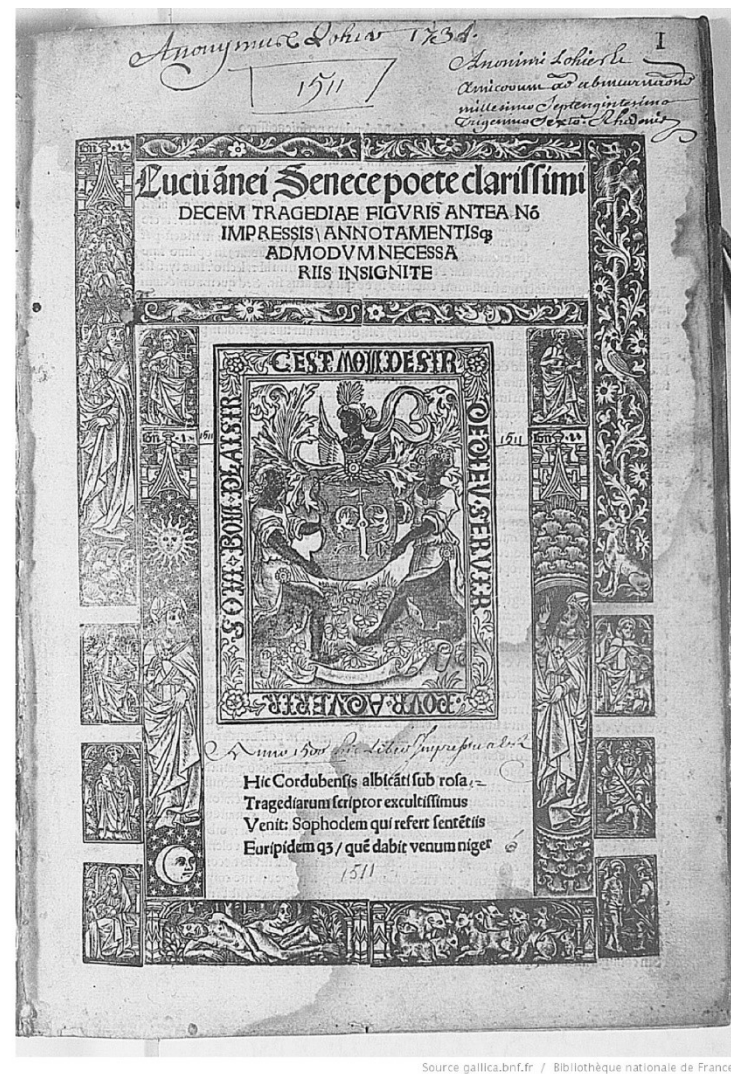 Anonymus Lohier 1734.
1511
I
Anonimi Lohier
amicorum ad
millesimo Septengintesimo
Trigesimo Sexto Rhedonis
Lucii ãnei Senece poete clarissimi
DECEM TRAGEDIAE FIGVRIS ANTEA Nõ
IMPRESSIS\ANNOTAMENTISqꝫ
ADMODVM NECESSA
RIIS INSIGNITE
C EST MON DESIR
DE DIEV SERVIR
POVR AQVERIR
SON BON PLAISIR
1511
1511
Anno 1500 Hic Liber Impressus est
Hic Cordubensis albicãti sub rosa
Tragediarum scriptor excultissimus
Venit: Sophoclem qui refert sentẽtiis
Euripidem qꝫ/quẽ dabit venum niger
1511
Source gallica.bnf.fr / Bibliothèque nationale de France